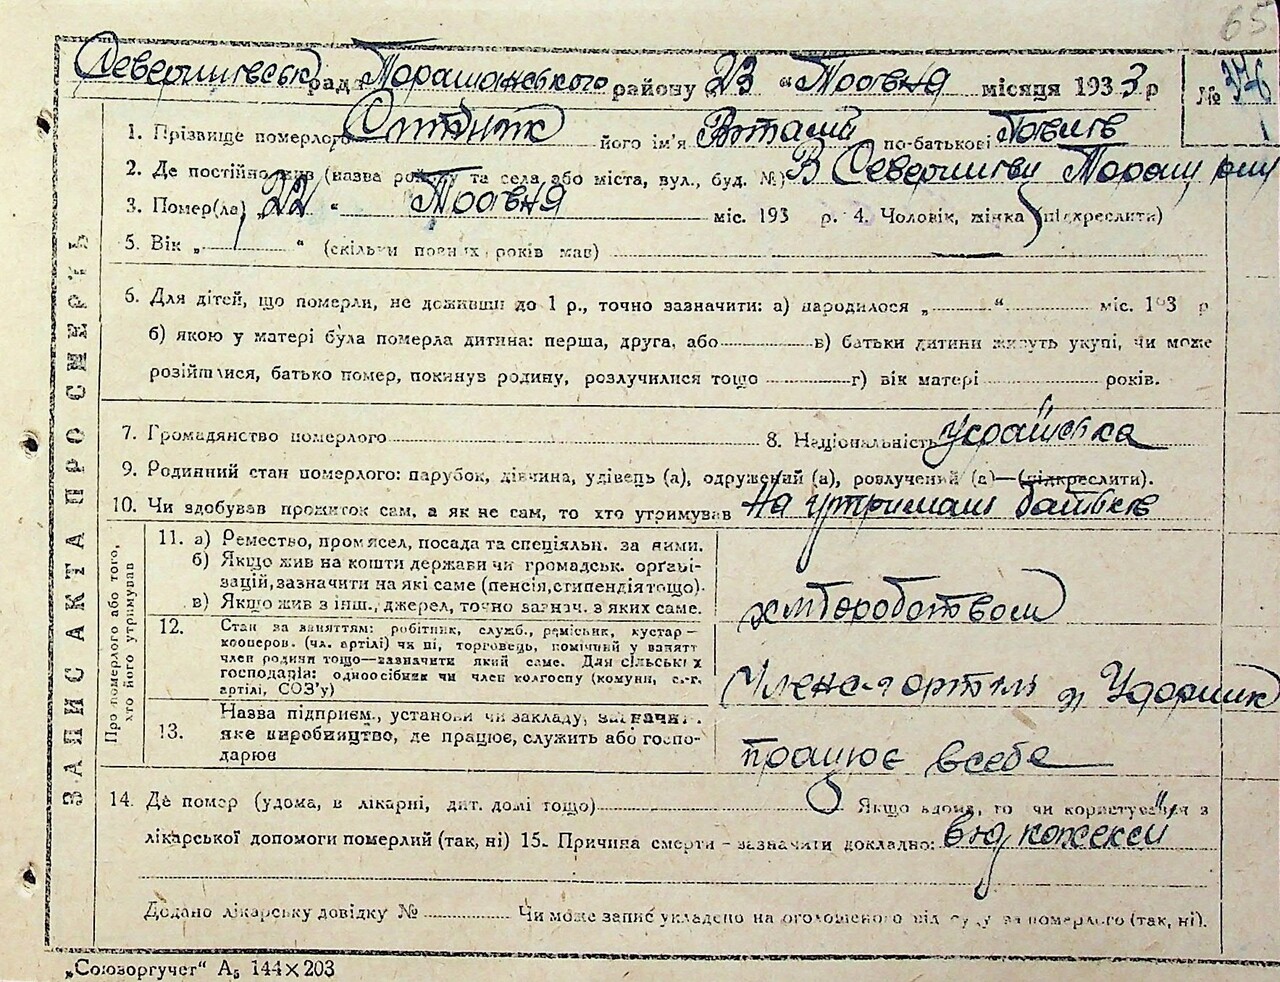 65
Северинівськ рада Таращанського району „23 “ Травня місяця 1933 р № 376
1. Прізвище померлого Ситник його ім'я Віталій по-батькові Павлів
2. Де постійно жив (назва району та села або міста, вул., буд. №) В Северинівці Таращ рну
3. Помер(ла) „22 “ Травня міс. 193 р. 4. Чоловік, жінка (підкреслити)
5. Вік „ “ (скільки повних років мав)
6. Для дітей, що померли, не доживши до 1 р., точно зазначити: а) народилося „ “ міс. 193 р
б) якою у матері була померла дитина: перша, друга, або в) батьки дитини живуть укупі, чи може
розійшлися, батько помер, покинув родину, розлучилися тощо г) вік матері років.
7. Громадянство померлого 8. Національність українська
9. Родинний стан померлого: парубок, дівчина, удівець (а), одружений (а), розлучений (а)—(підкреслити).
10. Чи здобував прожиток сам, а як не сам, то хто утримував На утриманні батьків
ЗАПИС АКТА ПРО СМЕРТЬ
Про померлого або того, хто його утримував
11. а) Ремество, промисел, посада та спеціяльн. за ними.
б) Якщо жив на кошти держави чи громадськ. органі-
зацій, зазначити на які саме (пенсія, стипендія тощо).
в) Якщо жив з інш., джерел, точно зазнач. з яких саме.
хліборобством
12. Стан за заняттям: робітник, служб., реміснік, кустар—
кооперов. (чл. артілі) чи ні, торговець, помічний у занятт
член родини тощо—зазначити який саме. Для сільських
господарів: одноосібник чи член колгоспу (комуни, с.-г.
артілі, СОЗ'у)
Член с-г артілі Ударник
13. Назва підприєм., установи чи закладу, зазначит.
яке виробництво, де працює, служить або госпо-
дарює
працює в себе
14. Де помер (удома, в лікарні, дит. домі тощо) Якщо вдома, то чи користування з
лікарської допомоги померлий (так, ні) 15. Причина смерти – зазначити докладно: від кахексії
Додано лікарську довідку № Чи може запис укладено на оголошеного від суду за померлого (так, ні).
„Союзоргучет“ А₅ 144×203